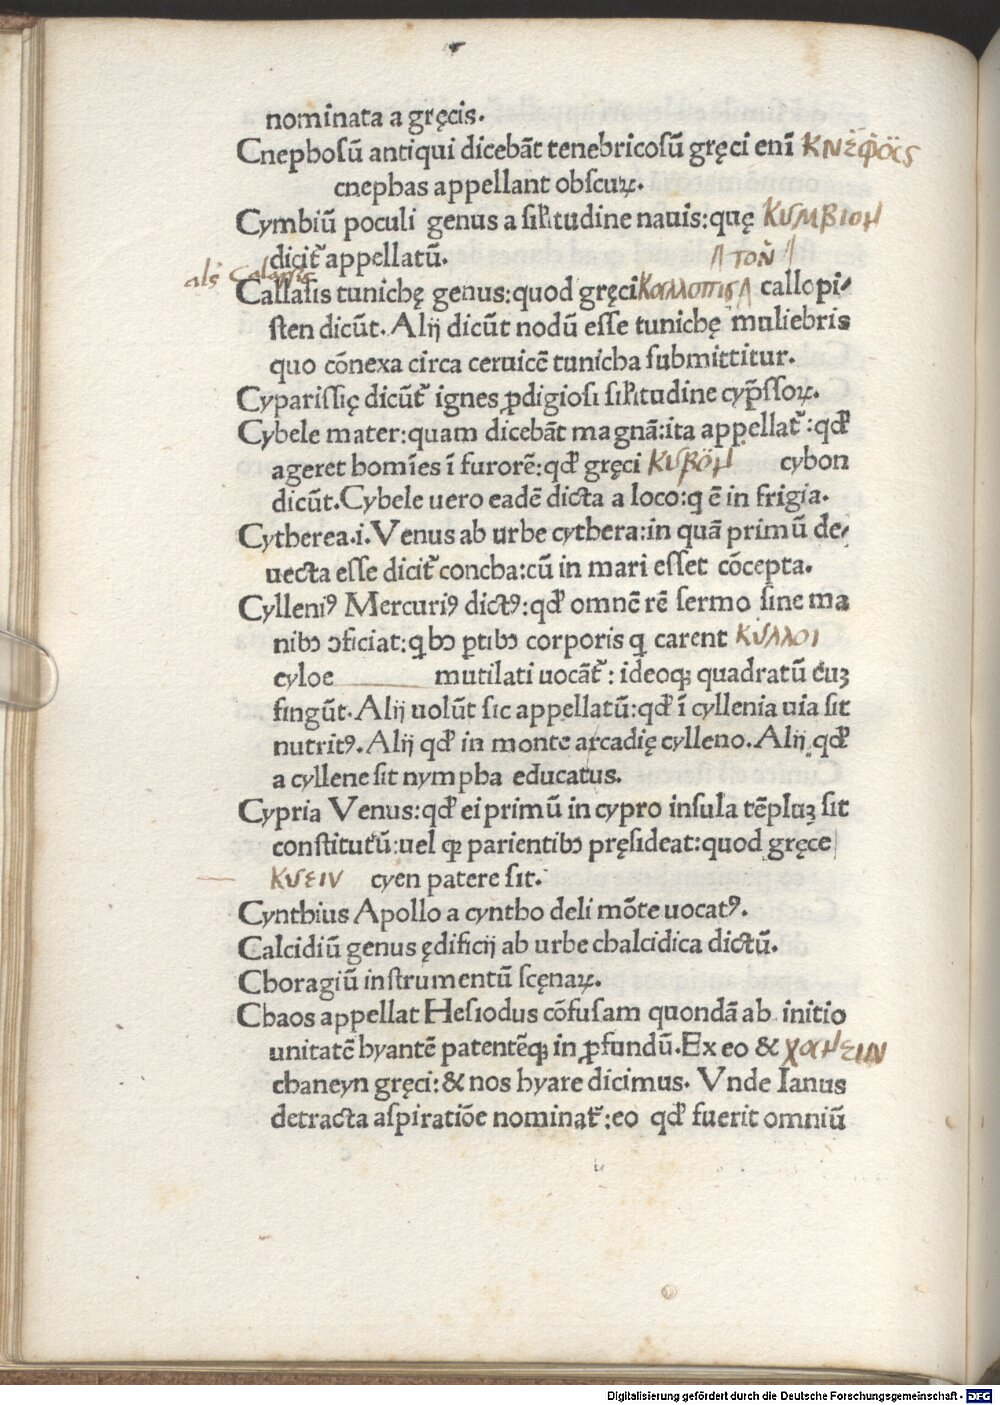 nominata a gręcis.
Cnephosū antiqui dicebāt tenebricosū gręci eni̅ κνέφας
cnephas appellant obscuꝝ.
Cymbiū poculi genus a sil̓itudine nauis:quę κυμβιον
dicit᷑ appellatū.
τον
als Calassis
Callasis tunichę genus:quod gręci καλλοπισ callopi-
sten dicūt. Alij dicūt nodū esse tunichę muliebris
quo cōnexa circa ceruicē tunicha submittitur.
Cyparissię dicūt᷑ ignes ꝓdigiosi sil̓itudine cyp̄ssoꝝ.
Cybele mater:quam dicebāt magnā:ita appellat᷑:qd̓
ageret homīes ī furorē:qd̓ gręci κυβὸν cybon
dicūt.Cybele uero eadē dicta a loco:q ē in frigia.
Cytherea.i.Venus ab urbe cythera:in quā primū de-
uecta esse dicit᷑ concha:cū in mari esset cōcepta.
Cylleniꝰ Mercuriꝰ dictꝰ:qd̓ omnē rē sermo sine ma
nibꝫ ↄficiat:qbꝫ ꝑtibꝫ corporis q carent κυλλοι
cyloe mutilati uocāt᷑: ideoqꝫ quadratū euꝫ
fingūt.Alij uolūt sic appellatū:qd̓ ī cyllenia uia sit
nutritꝰ.Alij qd̓ in monte arcadię cylleno.Alij qd̓
a cyllene sit nympha educatus.
Cypria Venus:qd̓ ei primū in cypro insula tēpluꝫ sit
constitutū:uel qꝫ parientibꝫ pręsideat:quod gręce
κυειν cyen patere sit.
Cynthius Apollo a cyntho deli mōte uocatꝰ.
Calcidiū genus ędificij ab urbe chalcidica dictū.
Choragiū instrumentū scęnaꝝ.
Chaos appellat Hesiodus cōfusam quondā ab initio
unitatē hyantē patentēqꝫ in ꝓfundū.Ex eo & χανειν
chaneyn gręci:& nos hyare dicimus. Vnde Ianus
detracta aspiratiōe nominat᷑:eo qd̓ fuerit omniū
Digitalisierung gefördert durch die Deutsche Forschungsgemeinschaft - DFG